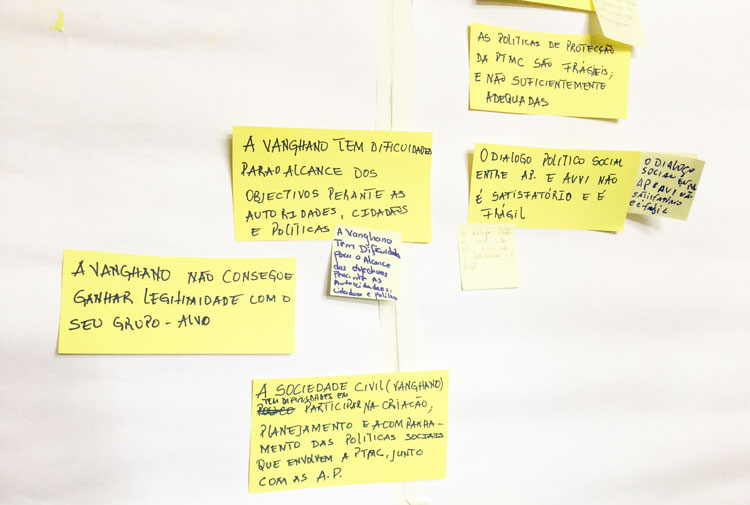 AS POLÍTICAS DE PROTECÇÃO
DA PTMC SÃO FRÁGEIS;
E NÃO SUFICIENTEMENTE
ADEQUADAS
A VANGHANO TEM DIFICULDADES
PARA O ALCANCE DOS
OBJECTIVOS PERANTE AS
AUTORIDADES, CIDADÃOS
E POLÍTICAS
O DIALOGO POLITICO SOCIAL
ENTRE AP. E AVVI NÃO
É SATISFATÓRIO E É
FRÁGIL
O DIALOGO
SOCIAL ENTRE
AP E AVVI NÃO
SATISFATÓRIO
E FRÁGIL
A Vanghano
Tem Dificuldade
para o Alcance
das objectivos
Perante as
Autoridades,
cidadaos e politicos
A VANGHANO NÃO CONSEGUE
GANHAR LEGITIMIDADE COM O
SEU GRUPO-ALVO
A SOCIEDADE CIVIL (VANGHANO)
TEM DIFICULDADES EM
PARTICIPAR NA CRIAÇÃO,
PLANEJAMENTO E ACOMPANHA-
MENTO DAS POLÍTICAS SOCIAIS
QUE ENVOLVEM A PTMC, JUNTO
COM AS A.P.